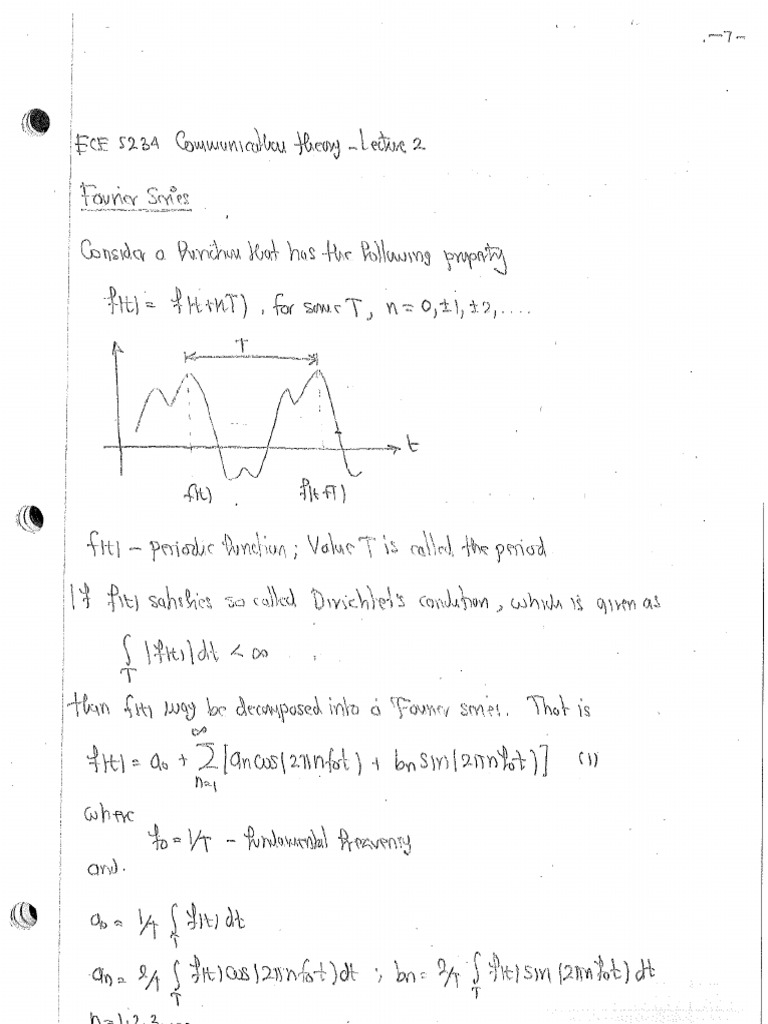 -7-
ECE 5234 Communication theory - Lecture 2
Fourier Series
Consider a function that has the following property
f(t) = f(t+nT), for some T, n = 0, ±1, ±2, ....
T
t
f(t) f(t+T)
f(t) – periodic function; Value T is called the period
If f(t) satisfies so called Dirichlet's condition, which is given as
∫_T |f(t)| dt < ∞
than f(t) may be decomposed into a Fourier series. That is
f(t) = a₀ + ∑_{n=1}^{∞} [an cos(2πnf₀t) + bn sin(2πnf₀t)] (1)
where
f₀ = 1/T – fundamental frequency
and.
a₀ = 1/T ∫_T f(t) dt
an = 2/T ∫_T f(t) cos(2πnf₀t) dt ; bn = 2/T ∫_T f(t) sin(2πnf₀t) dt
n=1,2,3,...